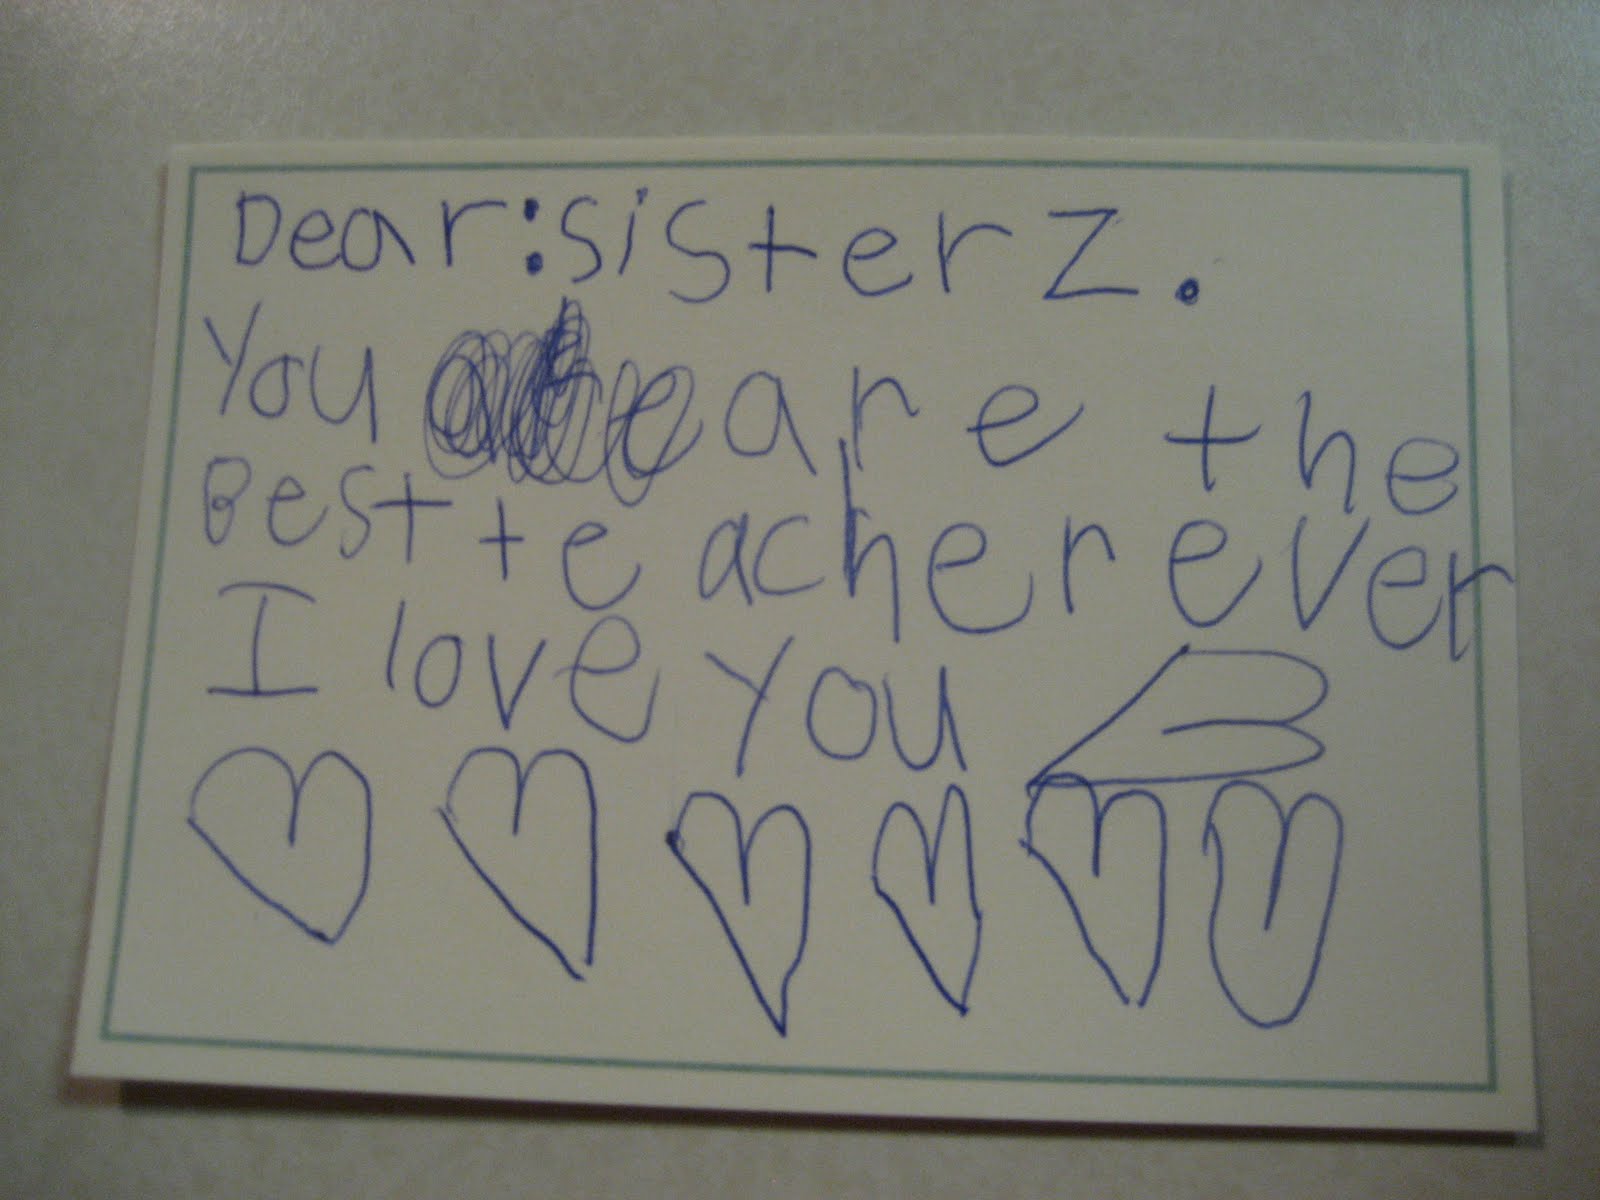 Dear: sister Z.
You are the
Best teacher ever
I love you